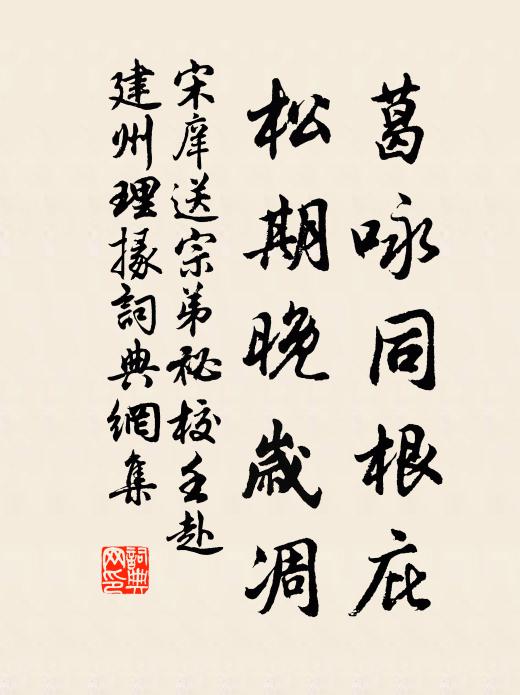 葛咏同根庇
松期晚歲凋
宋庠送宗弟秘校壬赴
建州理掾詞典網集
詞典网印